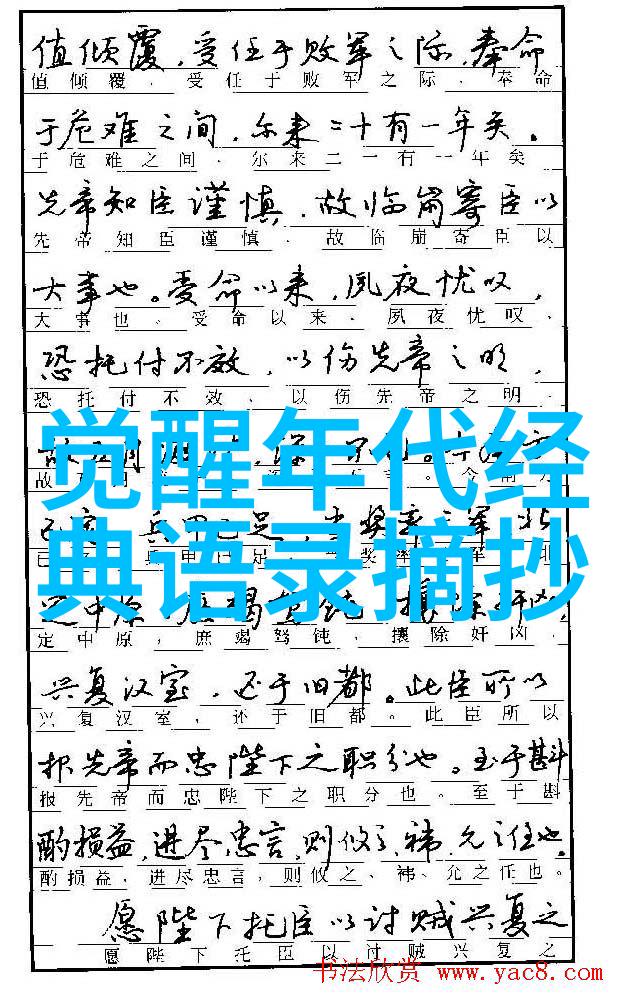 值倾覆，受任于败军之际，奉命
值倾覆，受任于败军之际，奉命
于危难之间，尔来二十有一年矣。
于危难之间，尔来二一有一年矣
先帝知臣谨慎，故临崩寄臣以
先帝知臣谨慎，故临崩寄臣以
大事也。受命以来，夙夜忧叹，
大事也。受命以来，夙夜忧叹，
恐托付不效，以伤先帝之明，
恐托付不效，以伤先帝之明，
觉醒年代经
典语录摘抄
定中原，庶竭驽钝，攘除奸凶，
兴复汉室，还于旧都。此臣所以
兴复汉室，还于旧都。此臣所以
报先帝而忠陛下之职分也。至于斟
报先帝而忠陛下之职分也。至于斟
酌损益，进尽忠言，则攸之、祎、允之任也。
酌损益，进尽忠言，则攸之、祎、允之任也。
愿陛下托臣以讨贼兴复之
愿陛下托臣以讨贼兴复之
书法欣赏 www.yac8.com